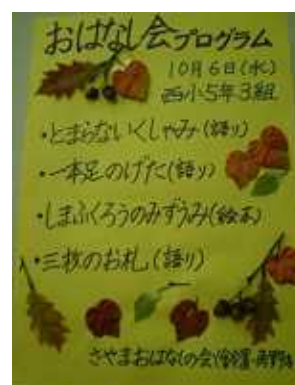 おはなし会プログラム
10月6日(水)
西小5年3組
・とまらないくしゃみ(語り)
・一本足のげた(語り)
・しまふくろうのみずうみ(絵本)
・三枚のお札(語り)
さやまおはなしの会